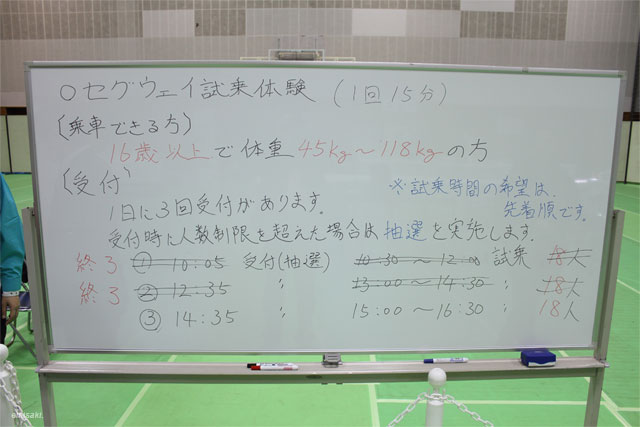 ○セグウェイ試乗体験 (1回15分)
(乗車できる方)
16歳以上で体重45kg～118kgの方
(受付)
※試乗時間の希望は、
先着順です。
1日に3回受付があります。
受付時に人数制限を超えた場合は抽選を実施します。
終了 ① 10:05 受付(抽選) 10:30～12:00 試乗 18人
終了 ② 12:35 〃 13:00～14:30 〃 18人
③ 14:35 〃 15:00～16:30 〃 18人